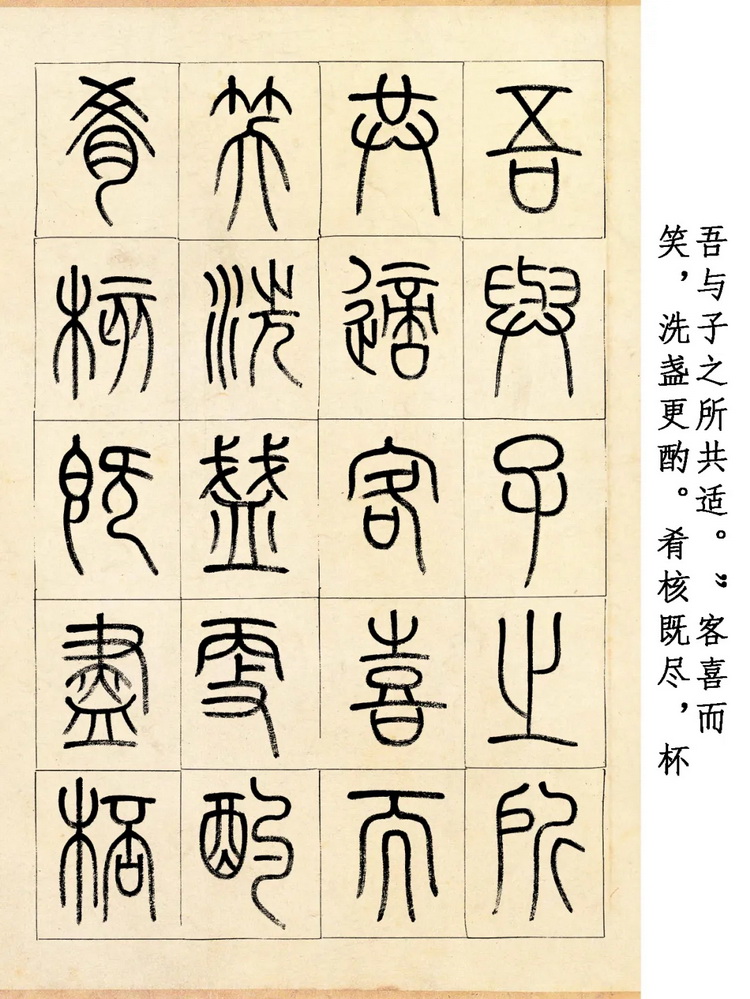 吾與子之所
共適客喜而
笑洗盞更酌
肴核既盡桮
吾与子之所共适。”客喜而
笑，洗盏更酌。肴核既尽，杯